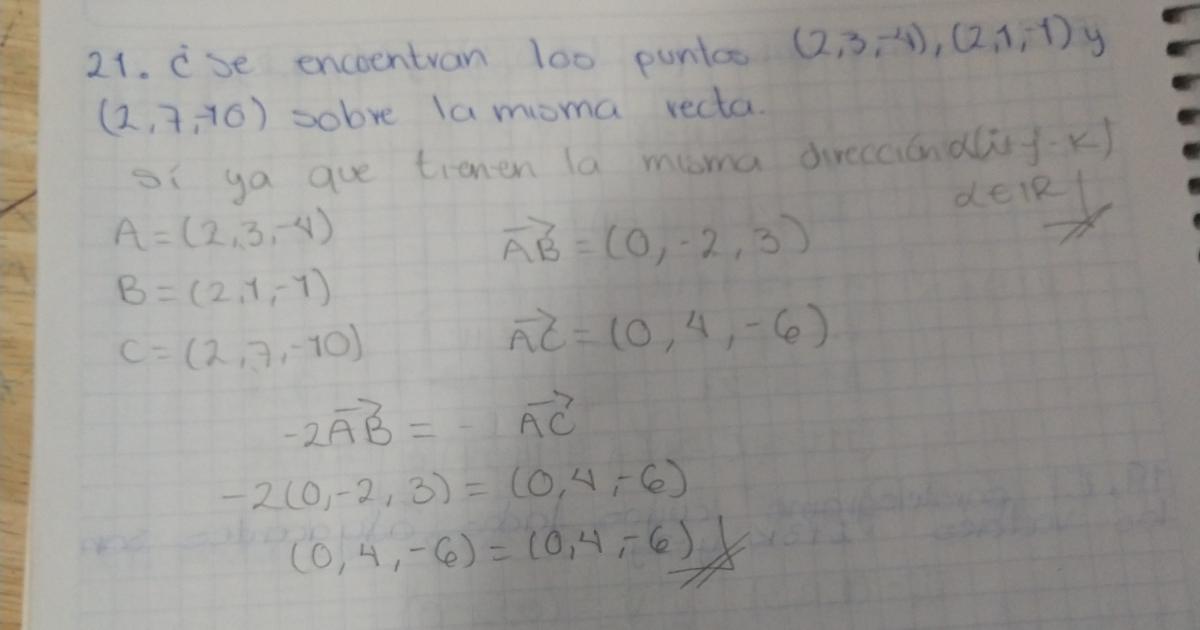 21. ¿Se encuentran los puntos (2,3,-4), (2,1,-1) y
(2,7,-10) sobre la misma recta.
Sí ya que tienen la misma dirección α(i+j-k)
α∈ℝ
A=(2,3,-4)
AB=(0,-2,3)
B=(2,1,-1)
C=(2,7,-10)
AC=(0,4,-6)
-2AB = AC
-2(0,-2,3)=(0,4,-6)
(0,4,-6)=(0,4,-6)